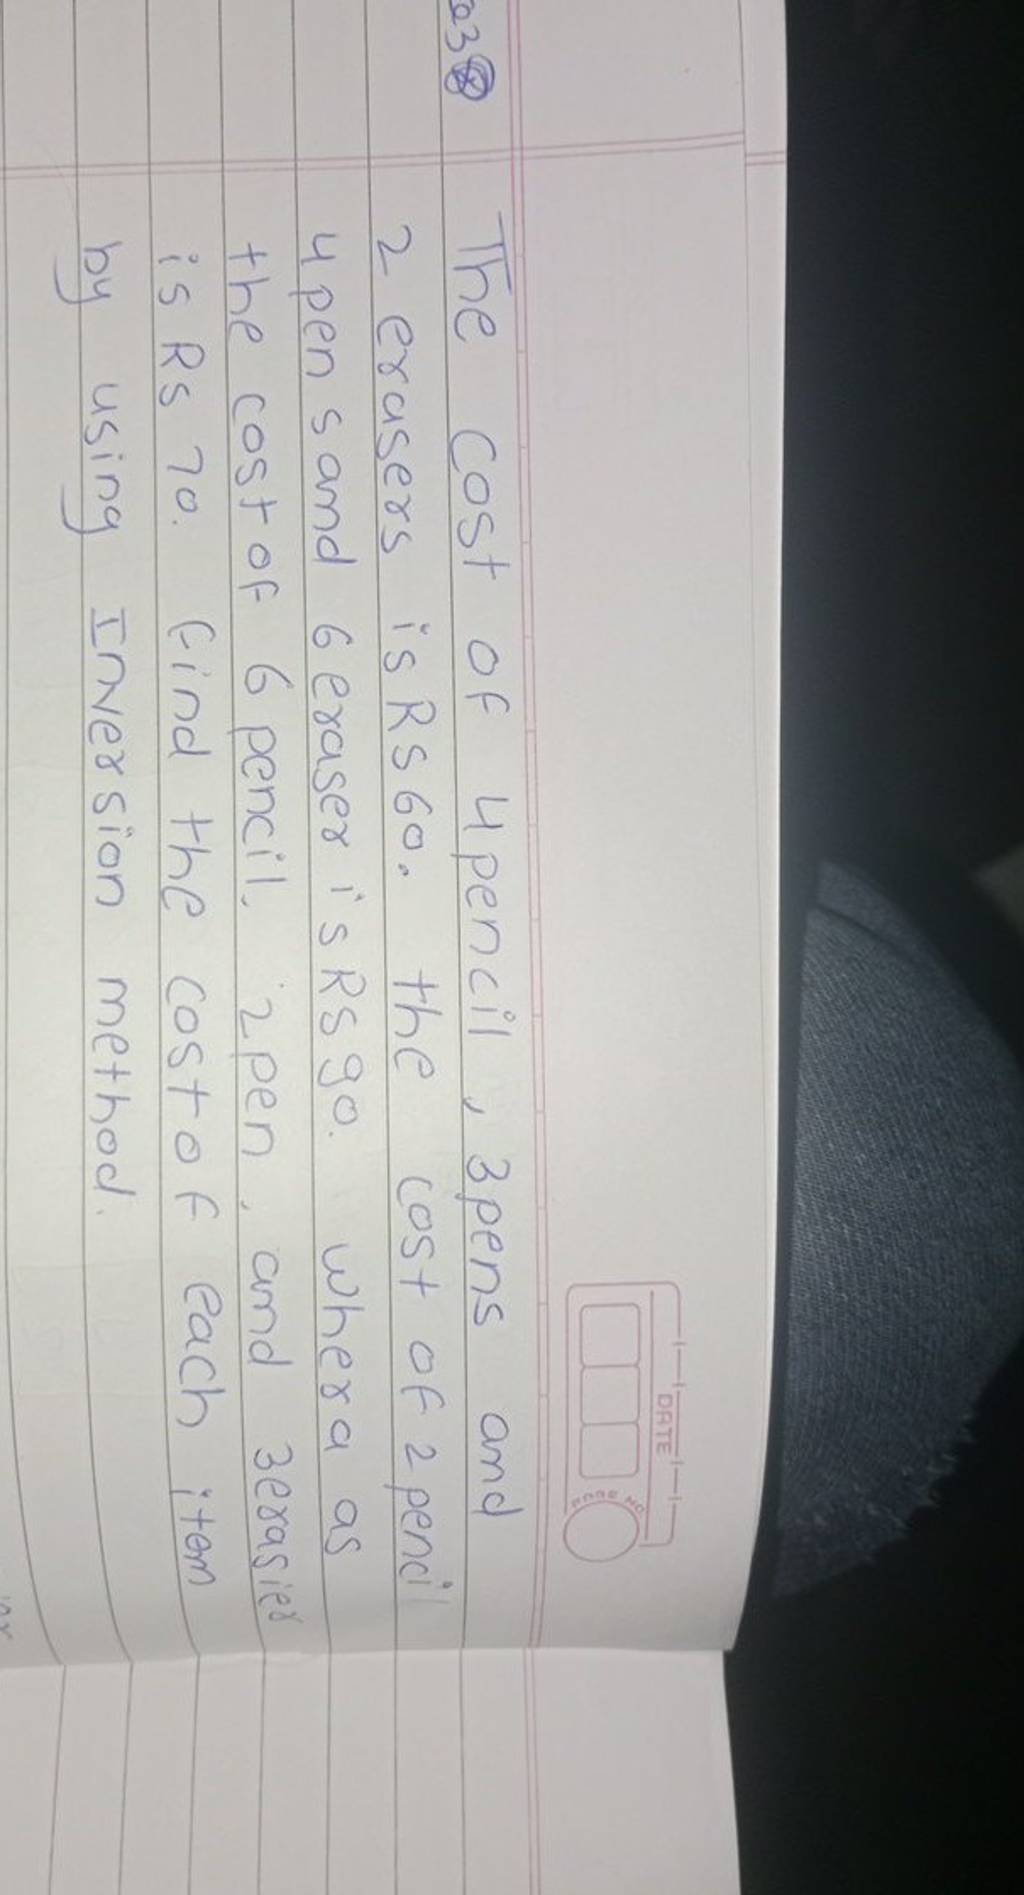 DATE
Q3
The cost of 4 pencil, 3 pens and
2 erasers is Rs 60. the cost of 2 pencil
4 pen s and 6 eraser is Rs 90. whera as
the cost of 6 pencil, 2 pen, and 3 erasier
is Rs 70. find the cost of each item
by using Inversion method.